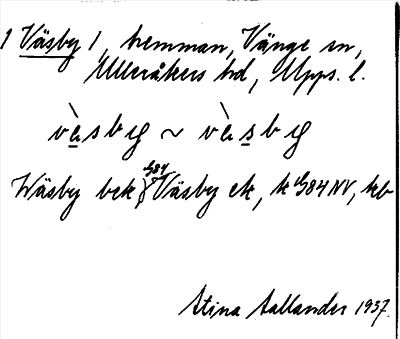 1 Väsby 1, hemman, Vänge sn,
Ulleråkers hd, Upps. l.
vä̀sby ~ vä̀sby
Wäsby bek G84 Väsby ek, k G84 NV, kb
Stina Sallander 1937.